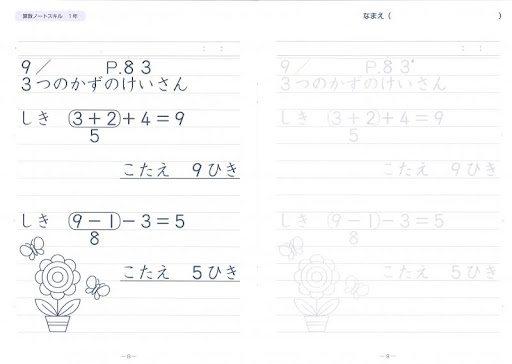 算数ノートスキル 1年
: :
9/ P.83
3つのかずのけいさん
しき (3+2)+4=9
5
こたえ 9ひき
しき (9-1)-3=5
8
こたえ 5ひき
―8―
なまえ( )
: :
9/ P.83
3つのかずのけいさん
しき (3+2)+4=9
5
こたえ 9ひき
しき (9-1)-3=5
8
こたえ 5ひき
―8―